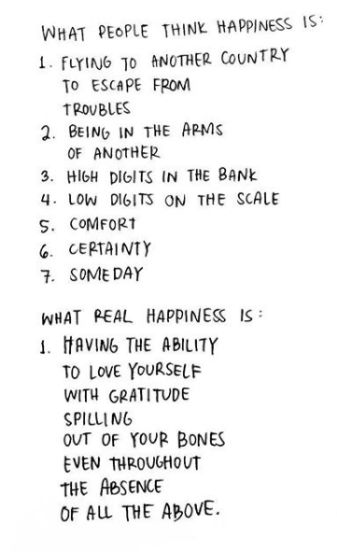 WHAT PEOPLE THINK HAPPINESS IS:
1. FLYING TO ANOTHER COUNTRY
TO ESCAPE FROM
TROUBLES
2. BEING IN THE ARMS
OF ANOTHER
3. HIGH DIGITS IN THE BANK
4. LOW DIGITS ON THE SCALE
5. COMFORT
6. CERTAINTY
7. SOMEDAY
WHAT REAL HAPPINESS IS:
1. HAVING THE ABILITY
TO LOVE YOURSELF
WITH GRATITUDE
SPILLING
OUT OF YOUR BONES
EVEN THROUGHOUT
THE ABSENCE
OF ALL THE ABOVE.